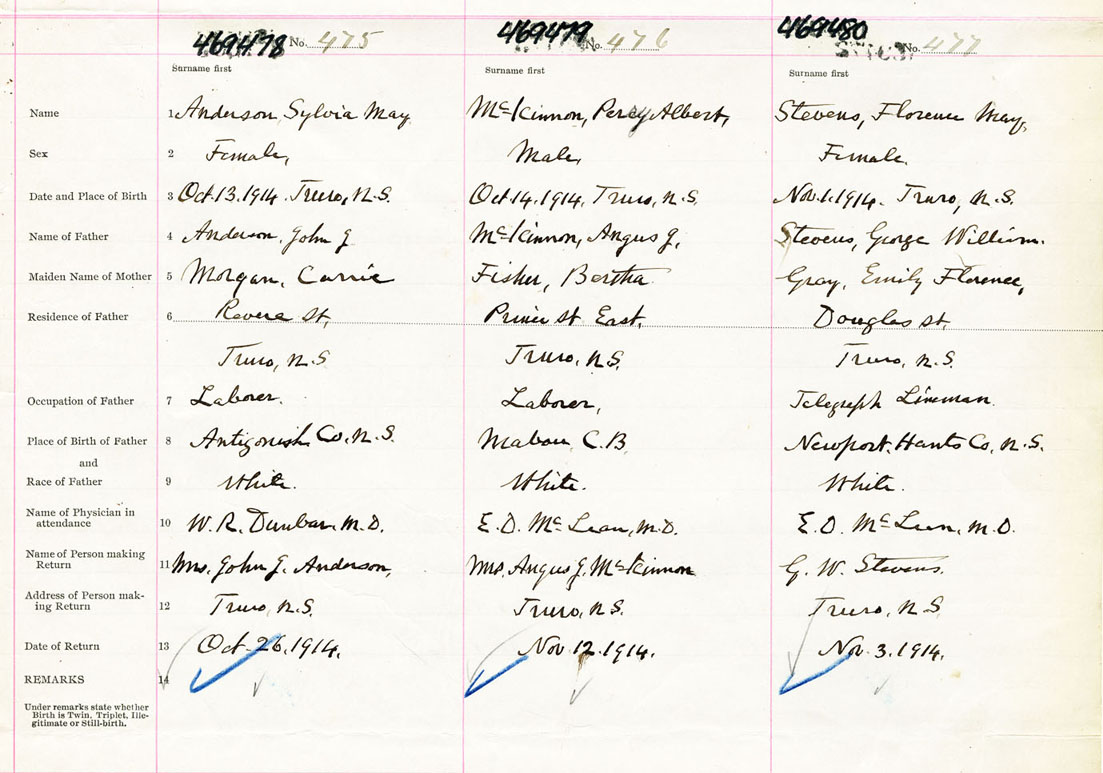 469478 No. 475 469479 No. 476 469480 No. 477
Surname first Surname first Surname first
Name 1 Anderson, Sylvia May McKinnon, Percy Albert, Stevens, Florence May,
Sex 2 Female, Male, Female.
Date and Place of Birth 3 Oct. 13. 1914. Truro, N.S. Oct. 14. 1914, Truro, N.S. Nov. 1. 1914. Truro, N.S.
Name of Father 4 Anderson, John J McKinnon, Angus J, Stevens, George William.
Maiden Name of Mother 5 Morgan, Carrie Fisher, Bertha Gray, Emily Florence,
Residence of Father 6 Revere St, Prince St East, Douglas St,
Truro, N.S Truro, N.S. Truro, N.S.
Occupation of Father 7 Laborer. Laborer, Telegraph Lineman
Place of Birth of Father 8 Antigonish Co, N.S. Mabou C.B. Newport, Hants Co, N.S.
and
Race of Father 9 White. White. White.
Name of Physician in
attendance 10 W. R. Dunbar, M.D. E. D. McLean, M.D. E. D. McLean, M.D.
Name of Person making
Return 11 Mrs. John J. Anderson, Mrs. Angus J. McKinnon G. W. Stevens.
Address of Person mak-
ing Return 12 Truro, N.S. Truro, N.S. Truro, N.S
Date of Return 13 Oct 26. 1914. Nov 12. 1914. Nov. 3. 1914.
REMARKS 14
Under remarks state whether
Birth is Twin, Triplet, Ille-
gitimate or Still-birth.